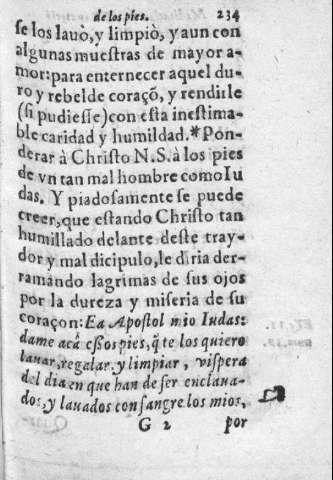 de los pies. 234
se los lauò, y limpiò, y aun con
algunas muestras de mayor a-
mor: para enternecer aquel du-
ro y rebelde coraçõ, y rendirle
(si pudiesse) con esta inestima-
ble caridad y humildad.*Pon-
derar à Christo N.S. à los pies
de vn tan mal hombre como Iu
das. Y piadosamente se puede
creer, que estando Christo tan
humillado delante deste tray-
dor y mal dicipulo, le diria der-
ramando lagrimas de sus ojos
por la dureza y miseria de su
coraçon: Ea Apostol mio Iudas:
dame acà essos pies, q̃ te los quiero
lauar, regalar y limpiar, vispera
del dia en que han de ser enclaua-
dos, y lauados con sangre los mios,
G 2 por